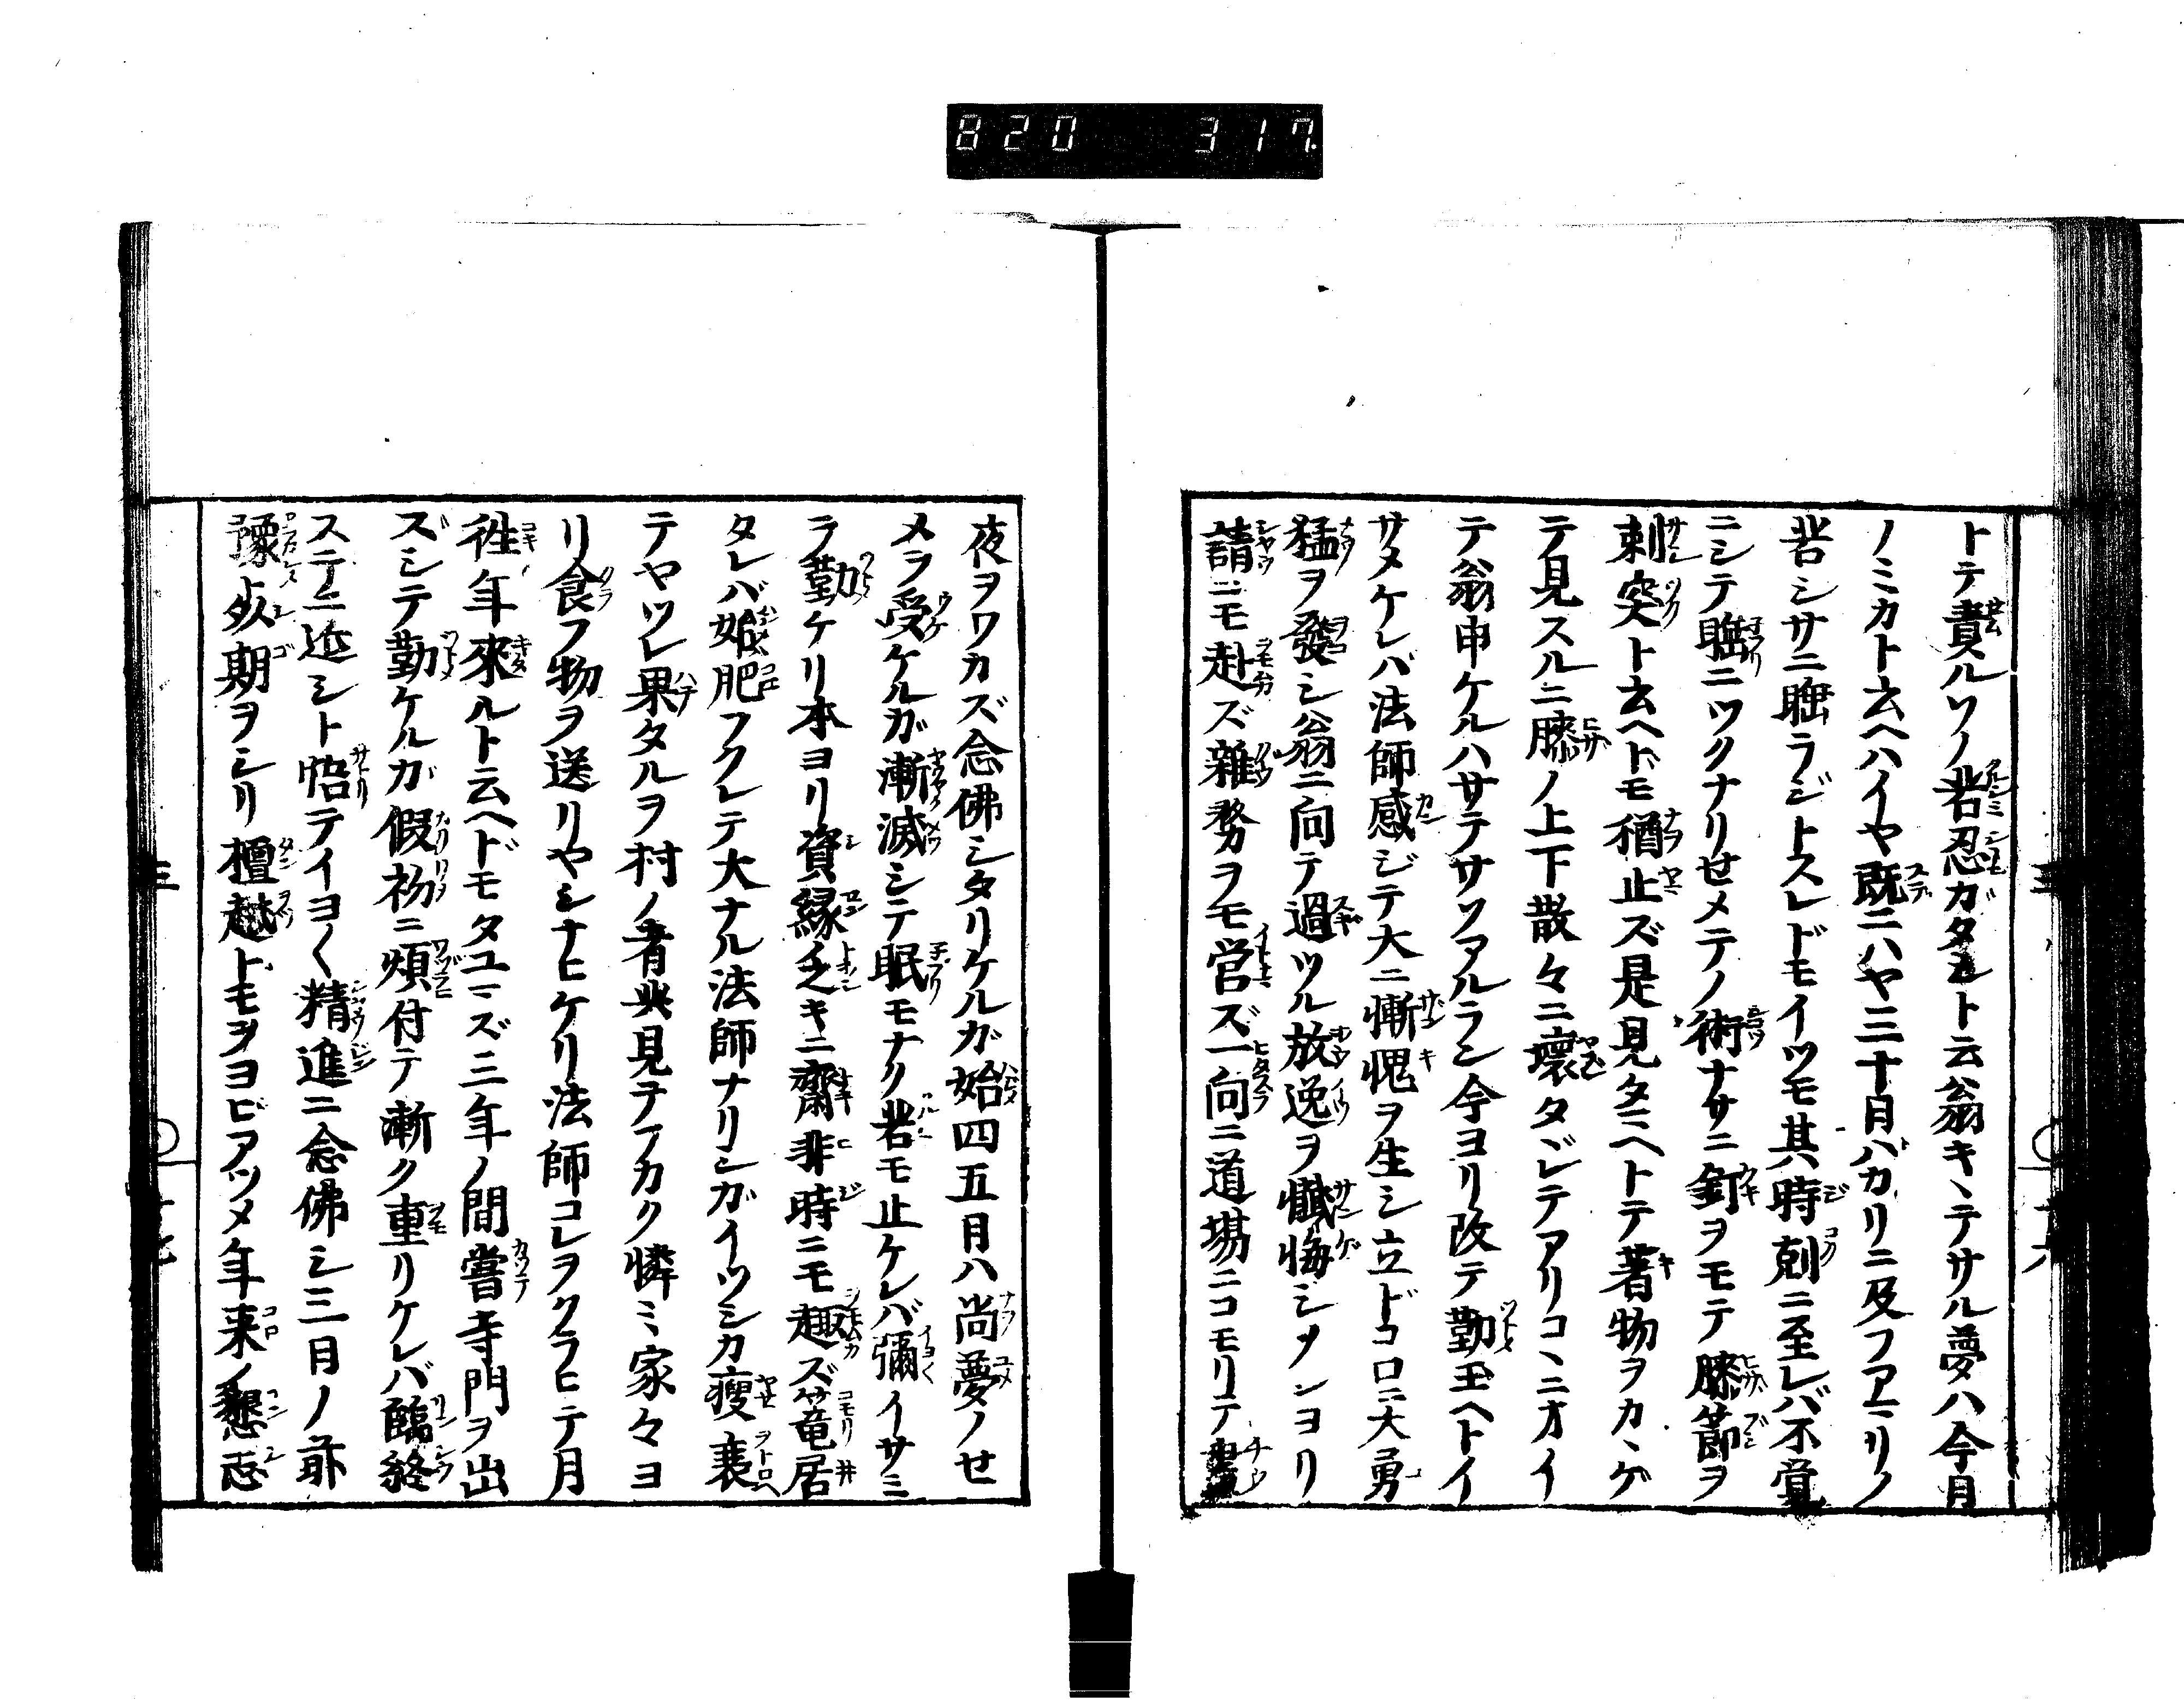 820 317
トテ責ルソノ苦忍ガタシト云翁キヽテサル夢ハ今月
ノミカト云ヘハイヤ既ニハヤ三十月バカリニ及フアマリノ
苦シサニ睡ラジトスレドモイツモ其時剋ニ至レバ不覚
ニシテ睡ニツクナリせメテノ術ナサニ釘ヲモテ膝節ヲ
刺突ト云ヘドモ猶止ズ是見タマヘトテ著物ヲカヽゲ
テ見スルニ膝ノ上下散々ニ壊タヾレテアリコヽニオイ
テ翁申ケルハサテサソアルラン今ヨリ改テ勤玉ヘトイ
サメケレバ法師感ジテ大ニ慚愧ヲ生シ立ドコロニ大勇
猛ヲ發シ翁ニ向テ過ツル放逸ヲ懺悔シソレヨリ
請ニモ赴ズ雑務ヲモ営ズ一向ニ道場ニコモリテ晝
夜ヲワカズ念佛シタリケルガ始四五月ハ尚夢ノせ
メヲ受ケルガ漸滅シテ眠モナク苦モ止ケレバ彌イサミ
テ勤ケリ本ヨリ資縁乏キニ齋非時ニモ趣ズ篭居
タレバ始肥フクレテ大ナル法師ナリシガイツシカ痩衰
テヤツレ果タルヲ村ノ者共見テアカク憐ミ家々ヨ
リ食フ物ヲ送リヤシナヒケリ法師コレヲクラヒテ月
徃年來ルト云ヘドモタユマズ三年ノ間嘗寺門ヲ出
ズシテ勤ケルガ假初ニ煩付テ漸ク重リケレバ臨終
ステニ近シト悟テイヨ〱精進ニ念佛シ三日ノ前
豫メ期ヲシリ檀越トモヲヨビアツメ年来ノ懇志